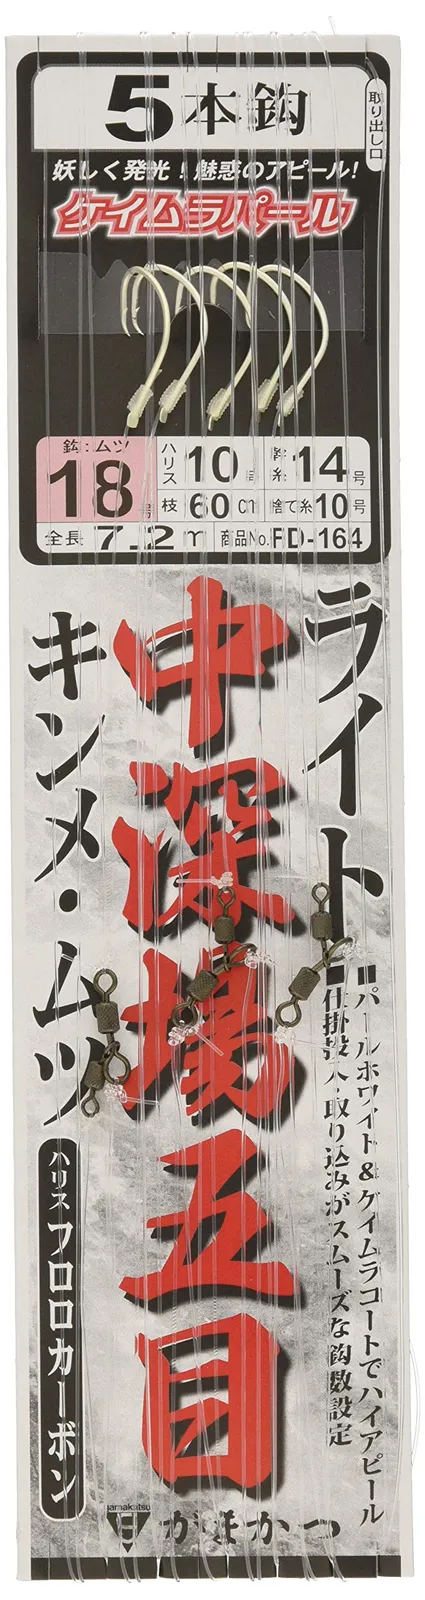 5本鈎
取り出し口
妖しく発光！魅惑のアピール！
ケイムラパール
鈎:ムツ
18号
ハリス10号
幹糸14号
枝60cm
捨て糸10号
全長7.2m
商品No.FD-164
ライト
中深場五目
キンメ・ムツ
パールホワイト&ケイムラコートでハイアピール
仕掛投入・取り込みがスムーズな鈎数設定
ハリス フロロカーボン
gamakatsu
がまかつ